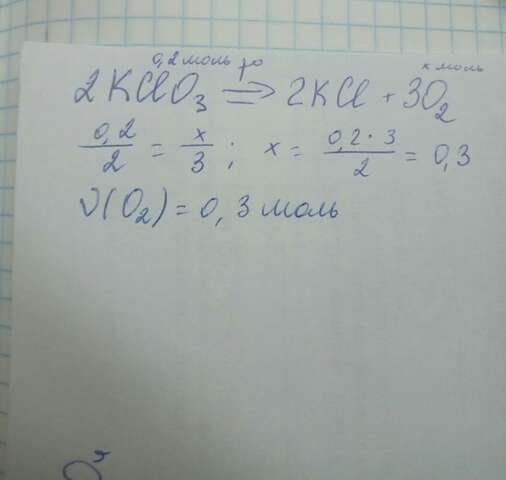 0,2 моль t° x моль
2KClO₃ ⟹ 2KCl + 3O₂
0,2/2 = x/3 ; x = 0,2·3/2 = 0,3
ν(O₂) = 0,3 моль